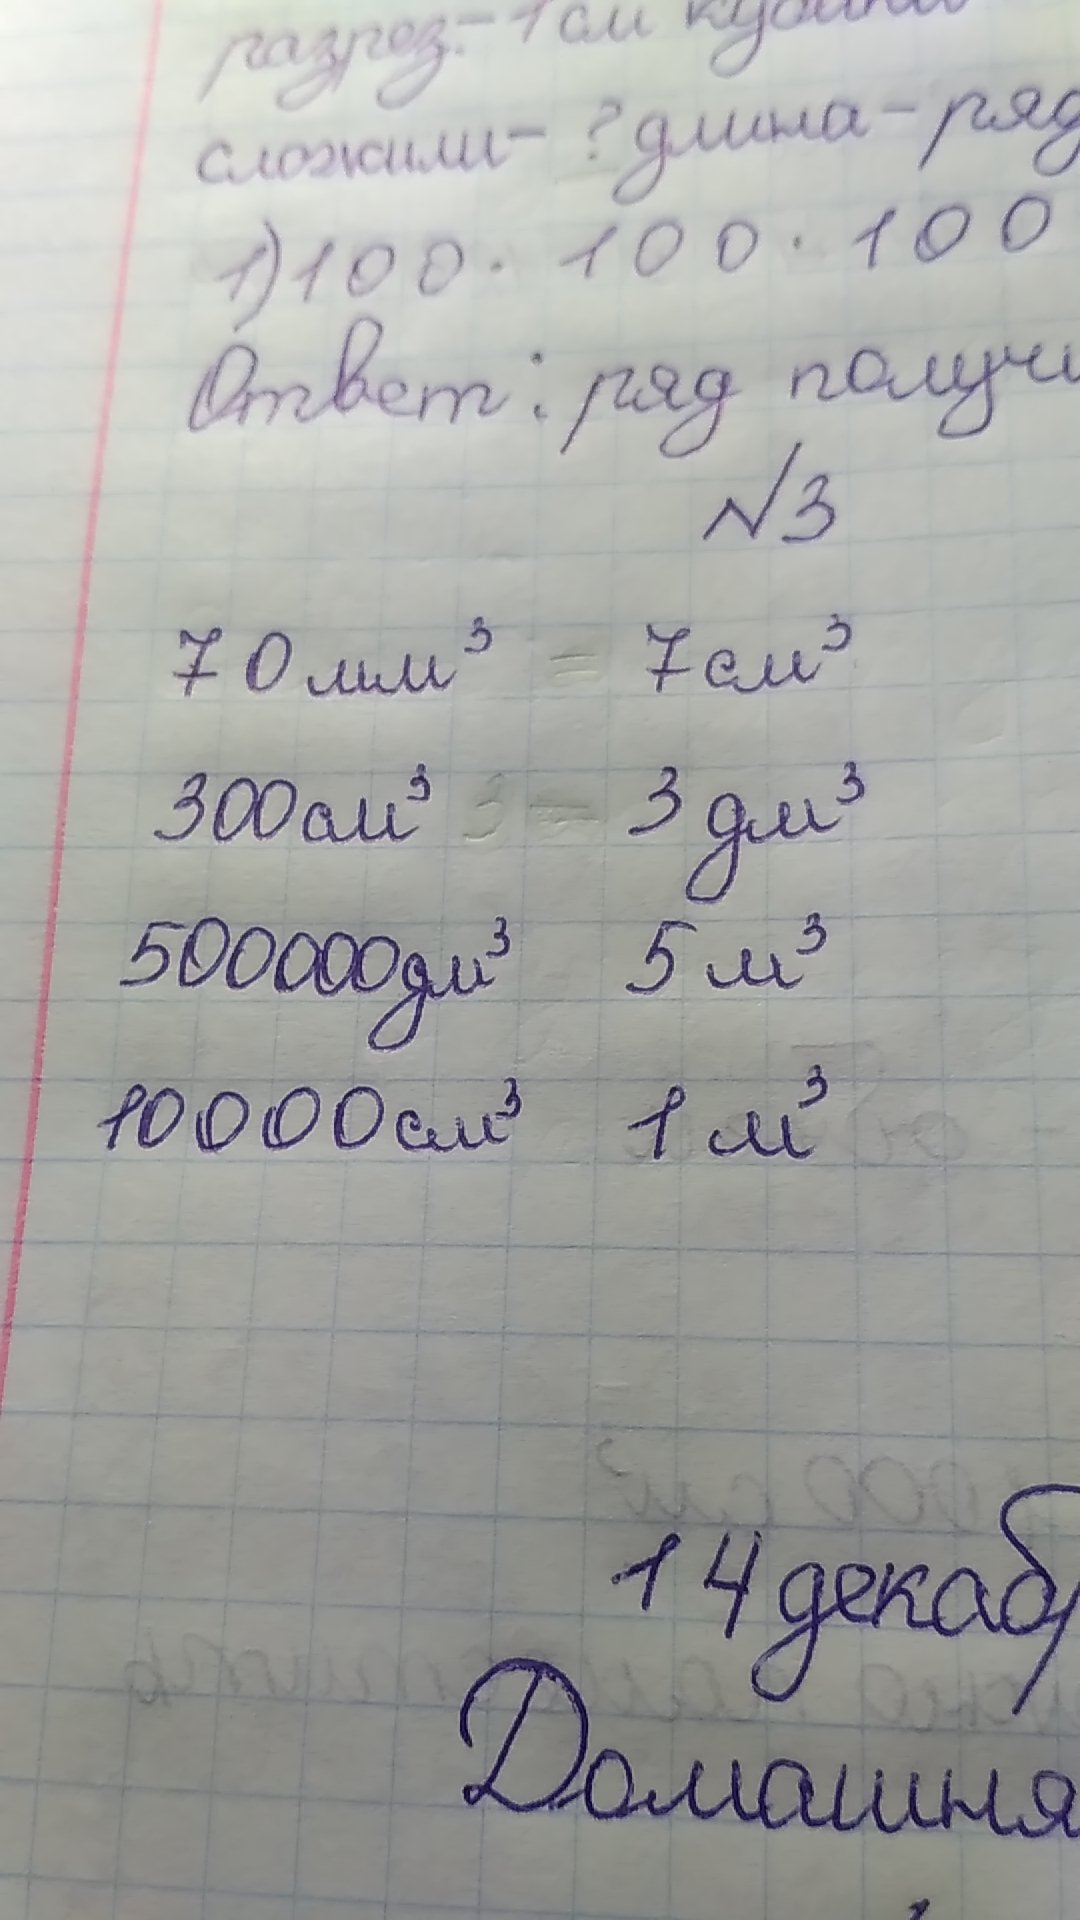 разрез.- 1см
сложили- ? длина - ряд
1) 100 · 100 · 100
Ответ: ряд получи
№3
70мм³ = 7см³
300см³ = 3 дм³
500000дм³ 5 м³
10000см³ 1 м³
14 декаб
Домашня